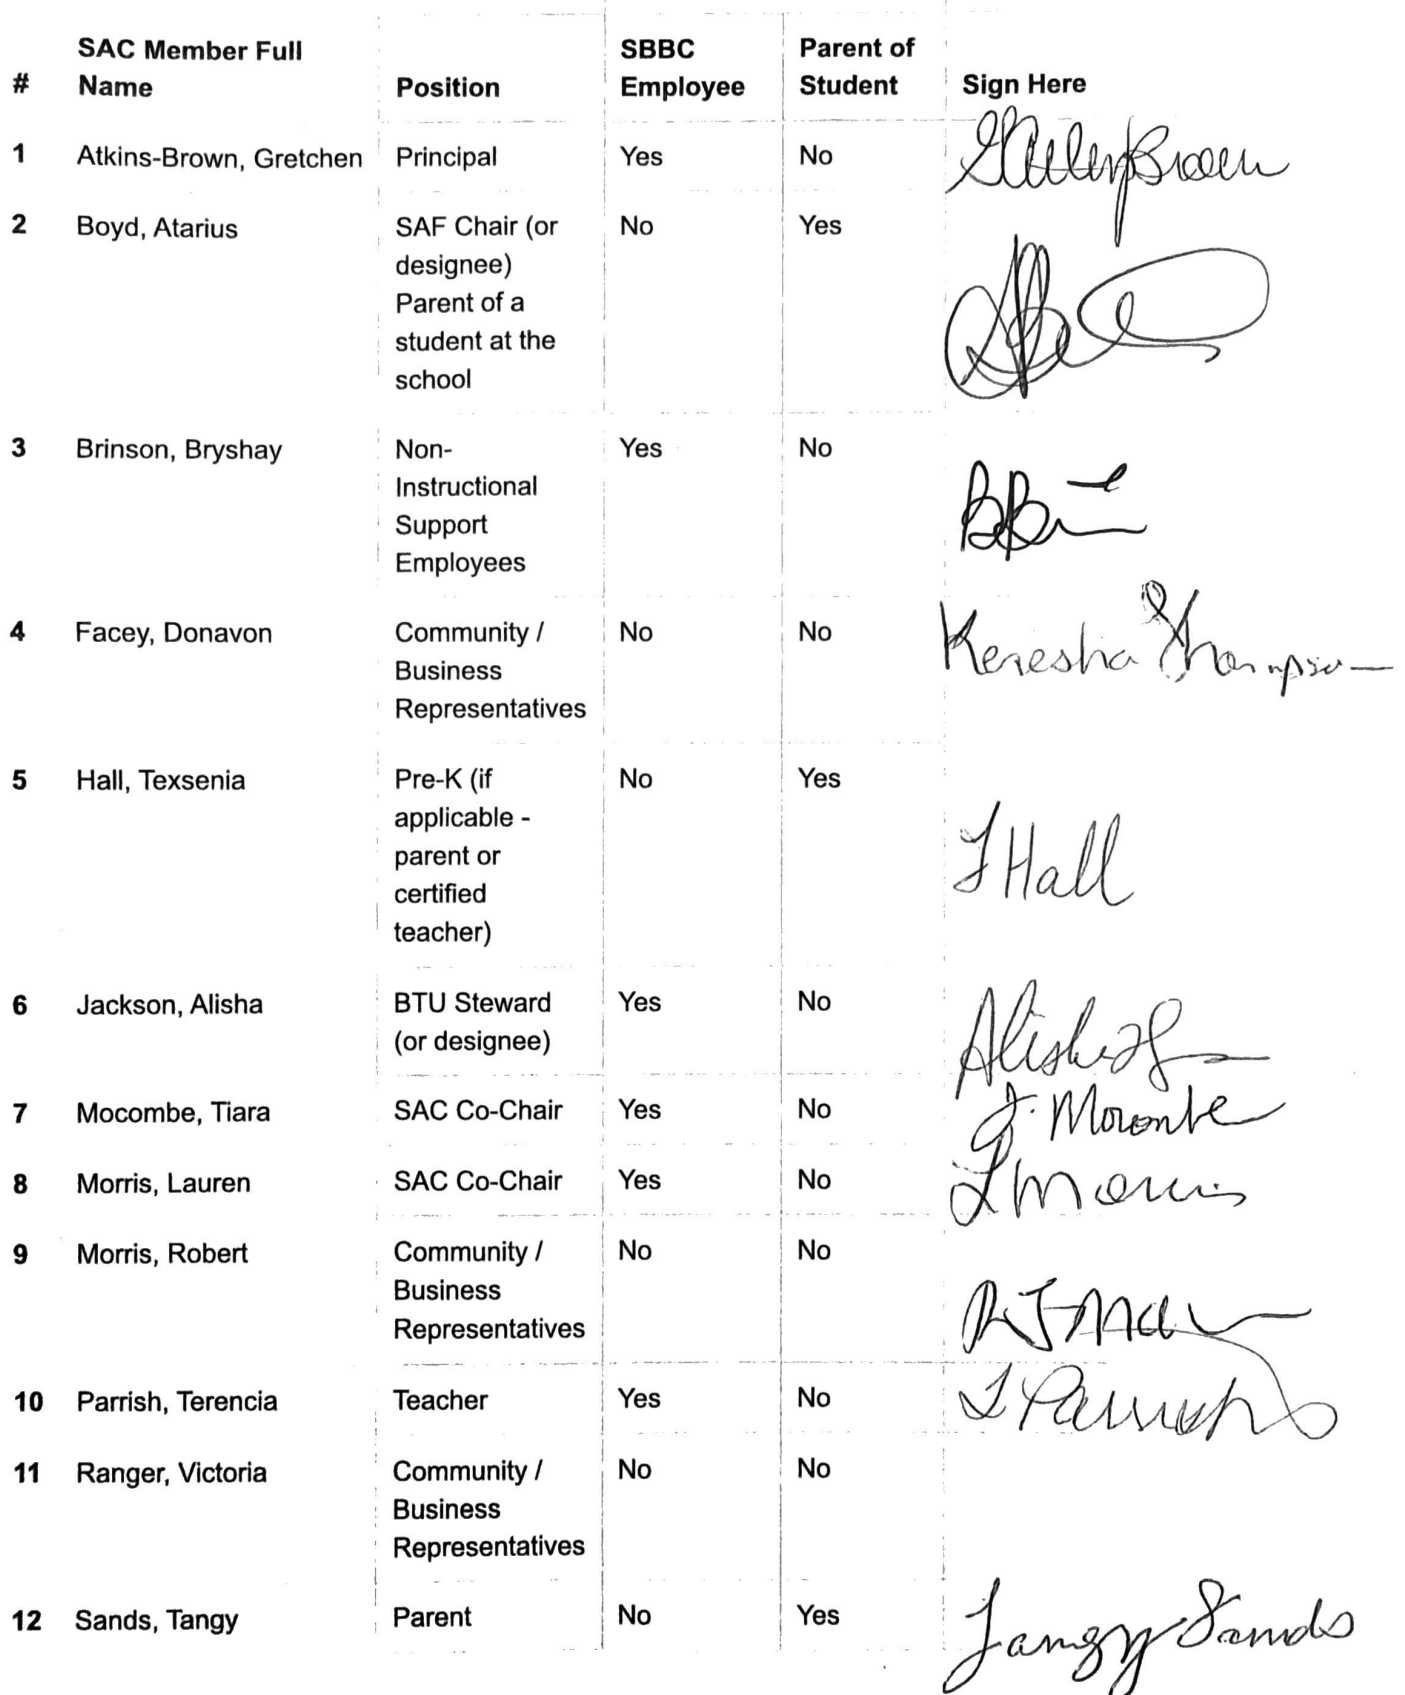 # SAC Member Full Name Position SBBC Employee Parent of Student Sign Here
1 Atkins-Brown, Gretchen Principal Yes No
2 Boyd, Atarius SAF Chair (or No Yes
designee)
Parent of a
student at the
school
3 Brinson, Bryshay Non- Yes No
Instructional
Support
Employees
4 Facey, Donavon Community / No No Keresha Thompson
Business
Representatives
5 Hall, Texsenia Pre-K (if No Yes
applicable -
parent or T Hall
certified
teacher)
6 Jackson, Alisha BTU Steward Yes No
(or designee) Alisha
7 Mocombe, Tiara SAC Co-Chair Yes No T. Mocombe
8 Morris, Lauren SAC Co-Chair Yes No L Morris
9 Morris, Robert Community / No No
Business
Representatives
10 Parrish, Terencia Teacher Yes No T Parrish
11 Ranger, Victoria Community / No No
Business
Representatives
12 Sands, Tangy Parent No Yes Tangy Sands